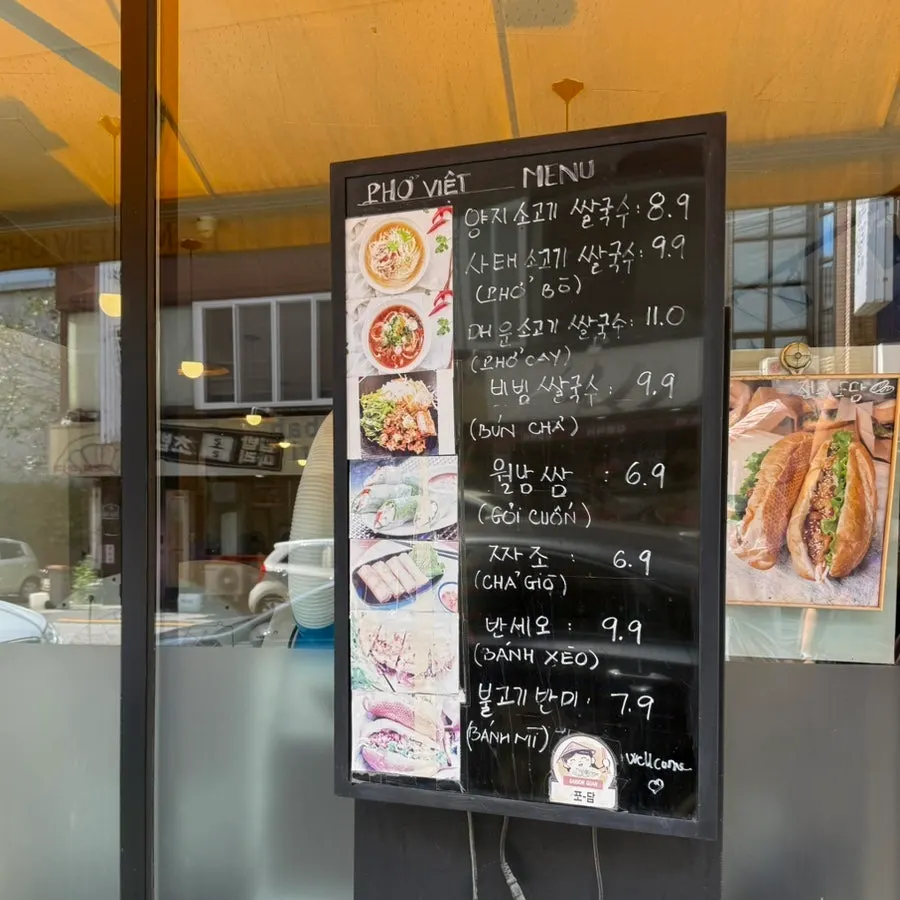 PHỞ VIỆT MENU
양지 소고기 쌀국수: 8.9
사태 소고기 쌀국수: 9.9
(PHỞ BÒ)
매운 소고기 쌀국수: 11.0
(PHỞ CAY)
비빔 쌀국수: 9.9
(BÚN CHẢ)
월남 쌈 : 6.9
(GỎI CUỐN)
짜조 : 6.9
(CHẢ GIÒ)
반세오 : 9.9
(BÁNH XÈO)
불고기 반미: 7.9
(BÁNH MÌ)
welcome
포-담